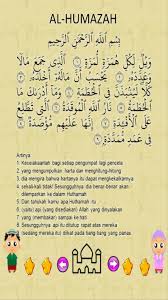 AL-HUMAZAH
بِسْمِ اللَّهِ الرَّحْمَٰنِ الرَّحِيمِ
وَيْلٌ لِكُلِّ هُمَزَةٍ لُمَزَةٍ ۝ الَّذِي جَمَعَ مَالًا
وَعَدَّدَهُ ۝ يَحْسَبُ أَنَّ مَالَهُ أَخْلَدَهُ ۝
كَلَّا لَيُنْبَذَنَّ فِي الْحُطَمَةِ ۝ وَمَا أَدْرَاكَ
مَا الْحُطَمَةُ ۝ نَارُ اللَّهِ الْمُوقَدَةُ ۝ الَّتِي تَطَّلِعُ
عَلَى الْأَفْئِدَةِ ۝ إِنَّهَا عَلَيْهِمْ مُؤْصَدَةٌ ۝
فِي عَمَدٍ مُمَدَّدَةٍ ۝
Artinya
1. Kecelakaanlah bagi setiap pengumpat lagi pencela
2. yang mengumpulkan harta dan menghitung-hitung
3. dia mengira bahwa hartanya itu dapat mengekalkannya
4. sekali-kali tidak! Sesungguhnya dia benar-benar akan
dilemparkan ke dalam Huthamah
5. Dan tahukah kamu apa Huthamah itu
6. (yaitu) api (yang disediakan) Allah yang dinyalakan
7. yang (membakar) sampai ke hati
8. Sesungguhnya api itu ditutup rapat atas mereka
9. sedang mereka itu diikat pada tiang-tiang yang panjang